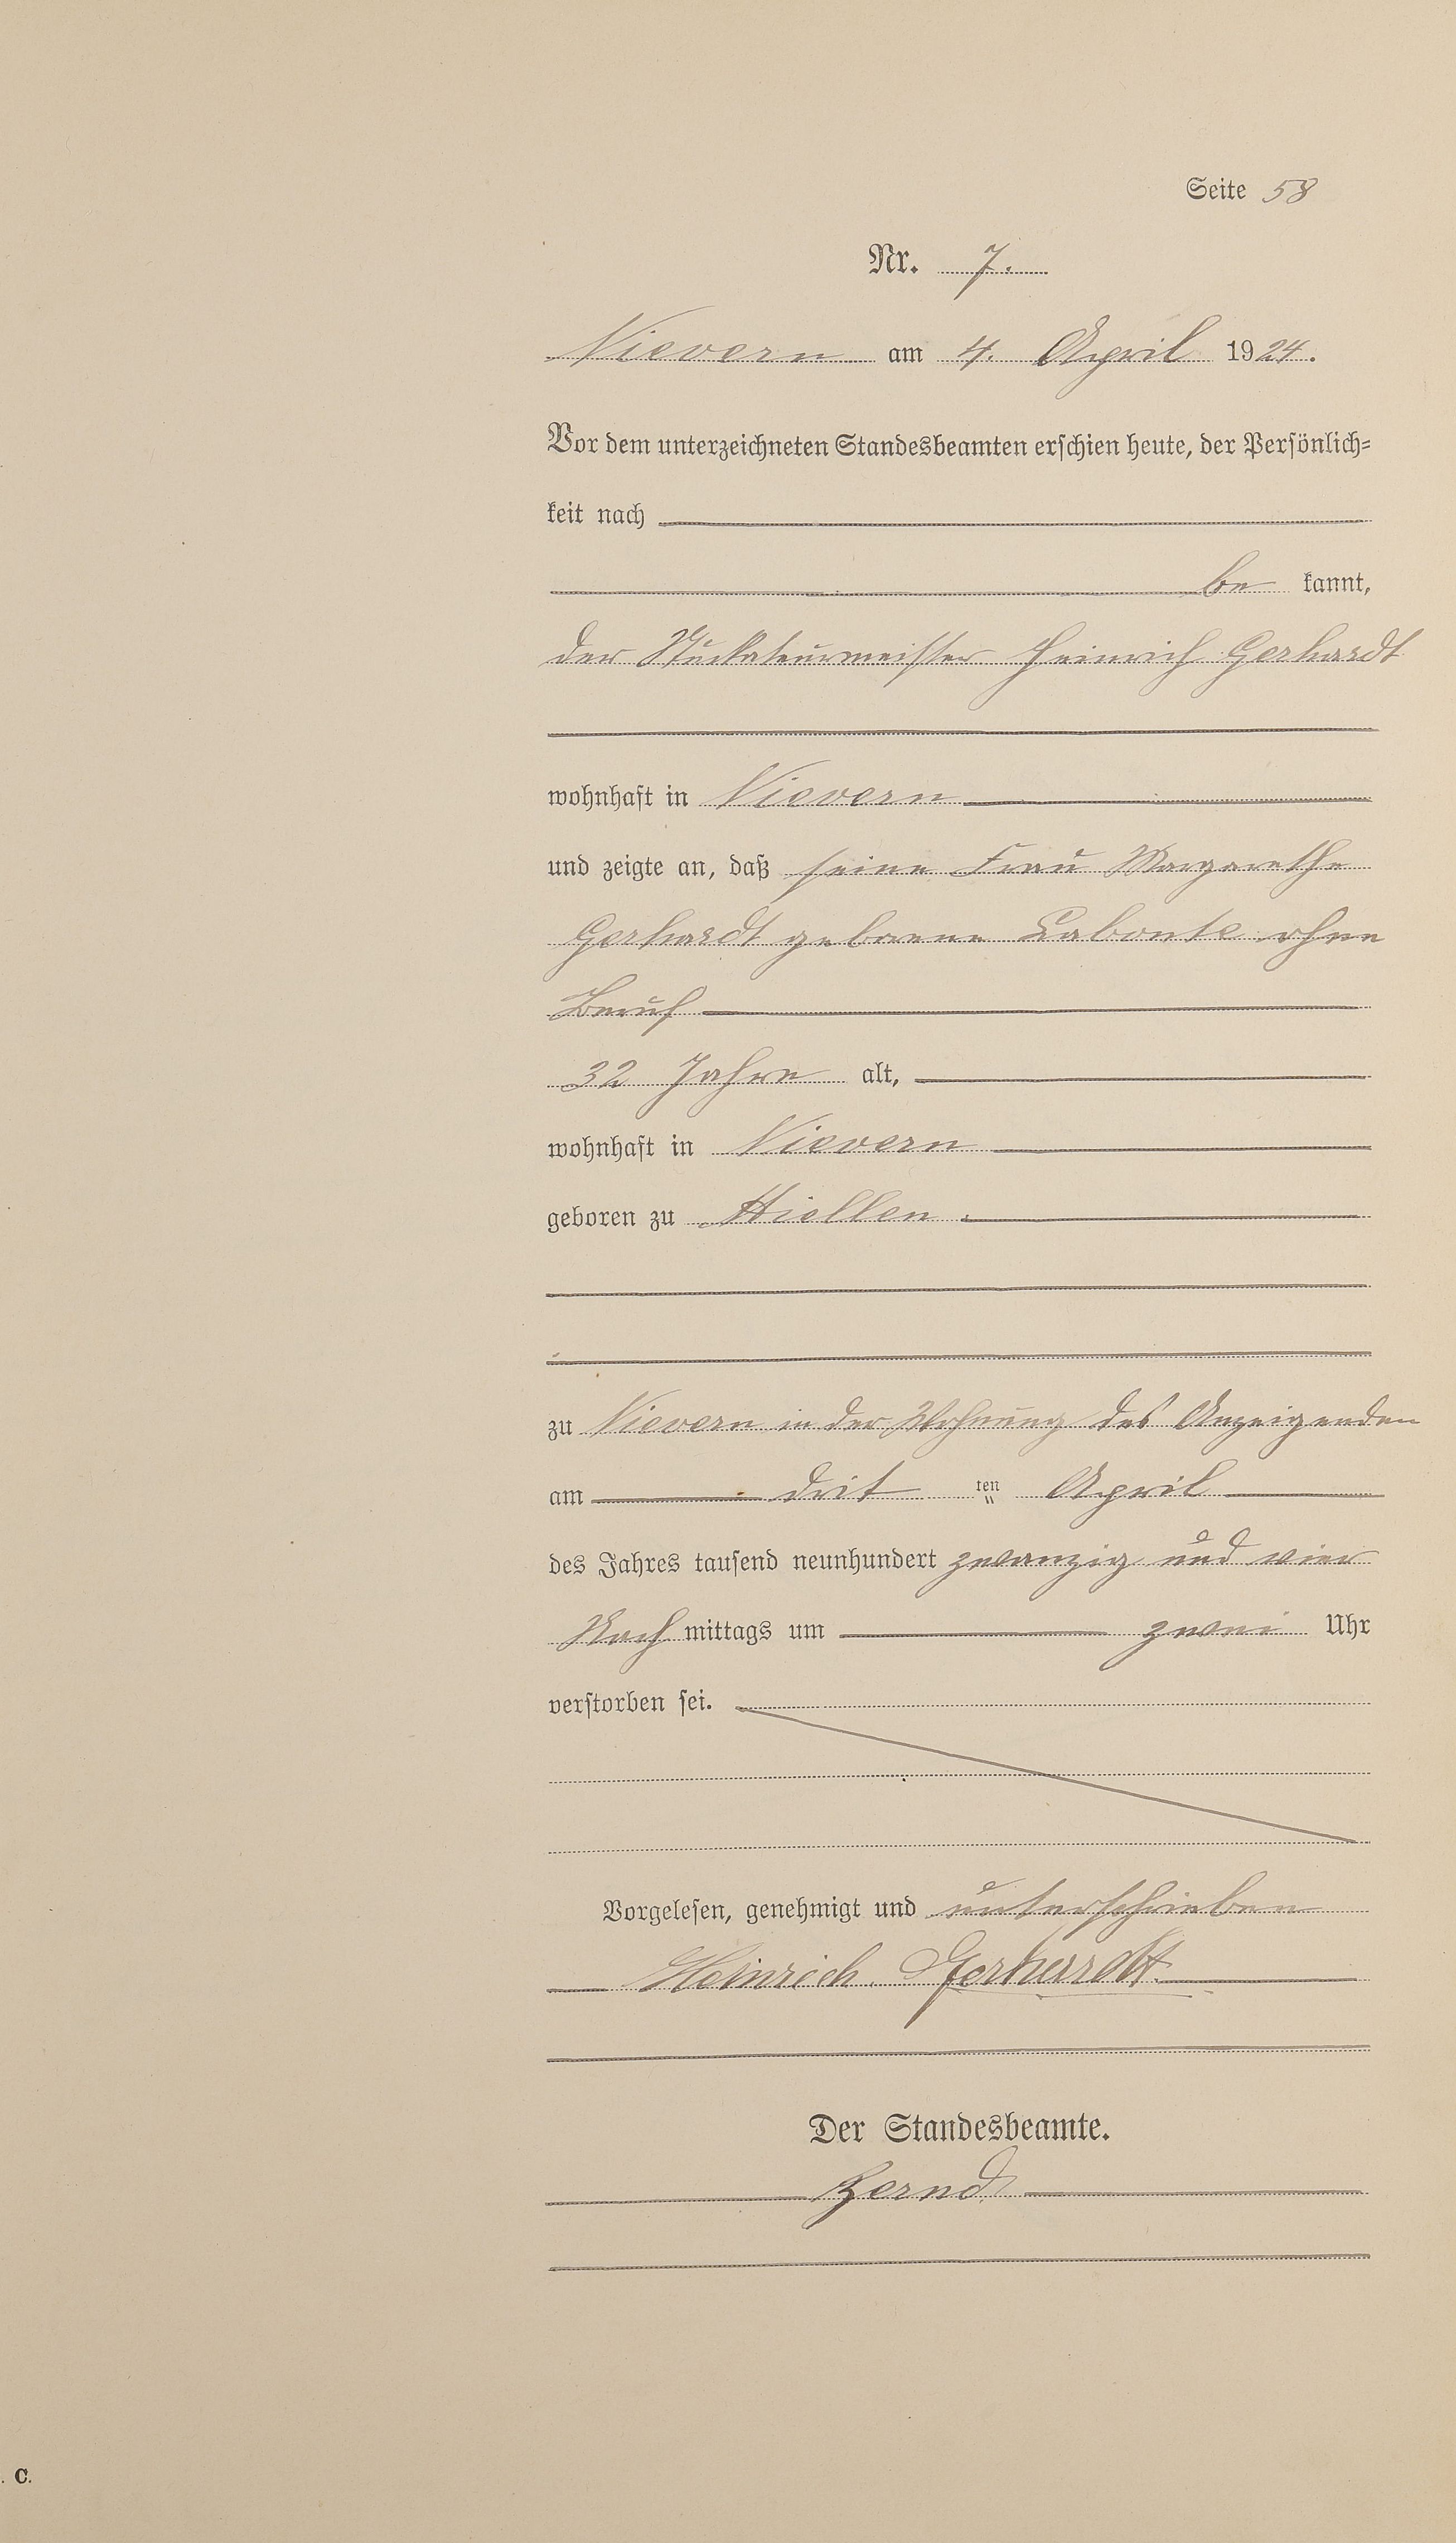 Seite 58
Nr. 7.
Nievern am 4. April 1924.
Vor dem unterzeichneten Standesbeamten erschien heute, der Persönlich=
keit nach
be kannt,
der Stuckateurmeister Heinrich Gerhardt
wohnhaft in Nievern
und zeigte an, daß seine Frau Margarethe
Gerhardt geborene Labonte ohne
Beruf
32 Jahre alt,
wohnhaft in Nievern
geboren zu
zu Nievern in der Wohnung des Anzeigenden
am drit ten April
des Jahres tausend neunhundert zwanzig und vier
Nach mittags um zwei Uhr
verstorben sei.
Vorgelesen, genehmigt und unterschrieben
Heinrich Gerhardt
Der Standesbeamte.
. C.